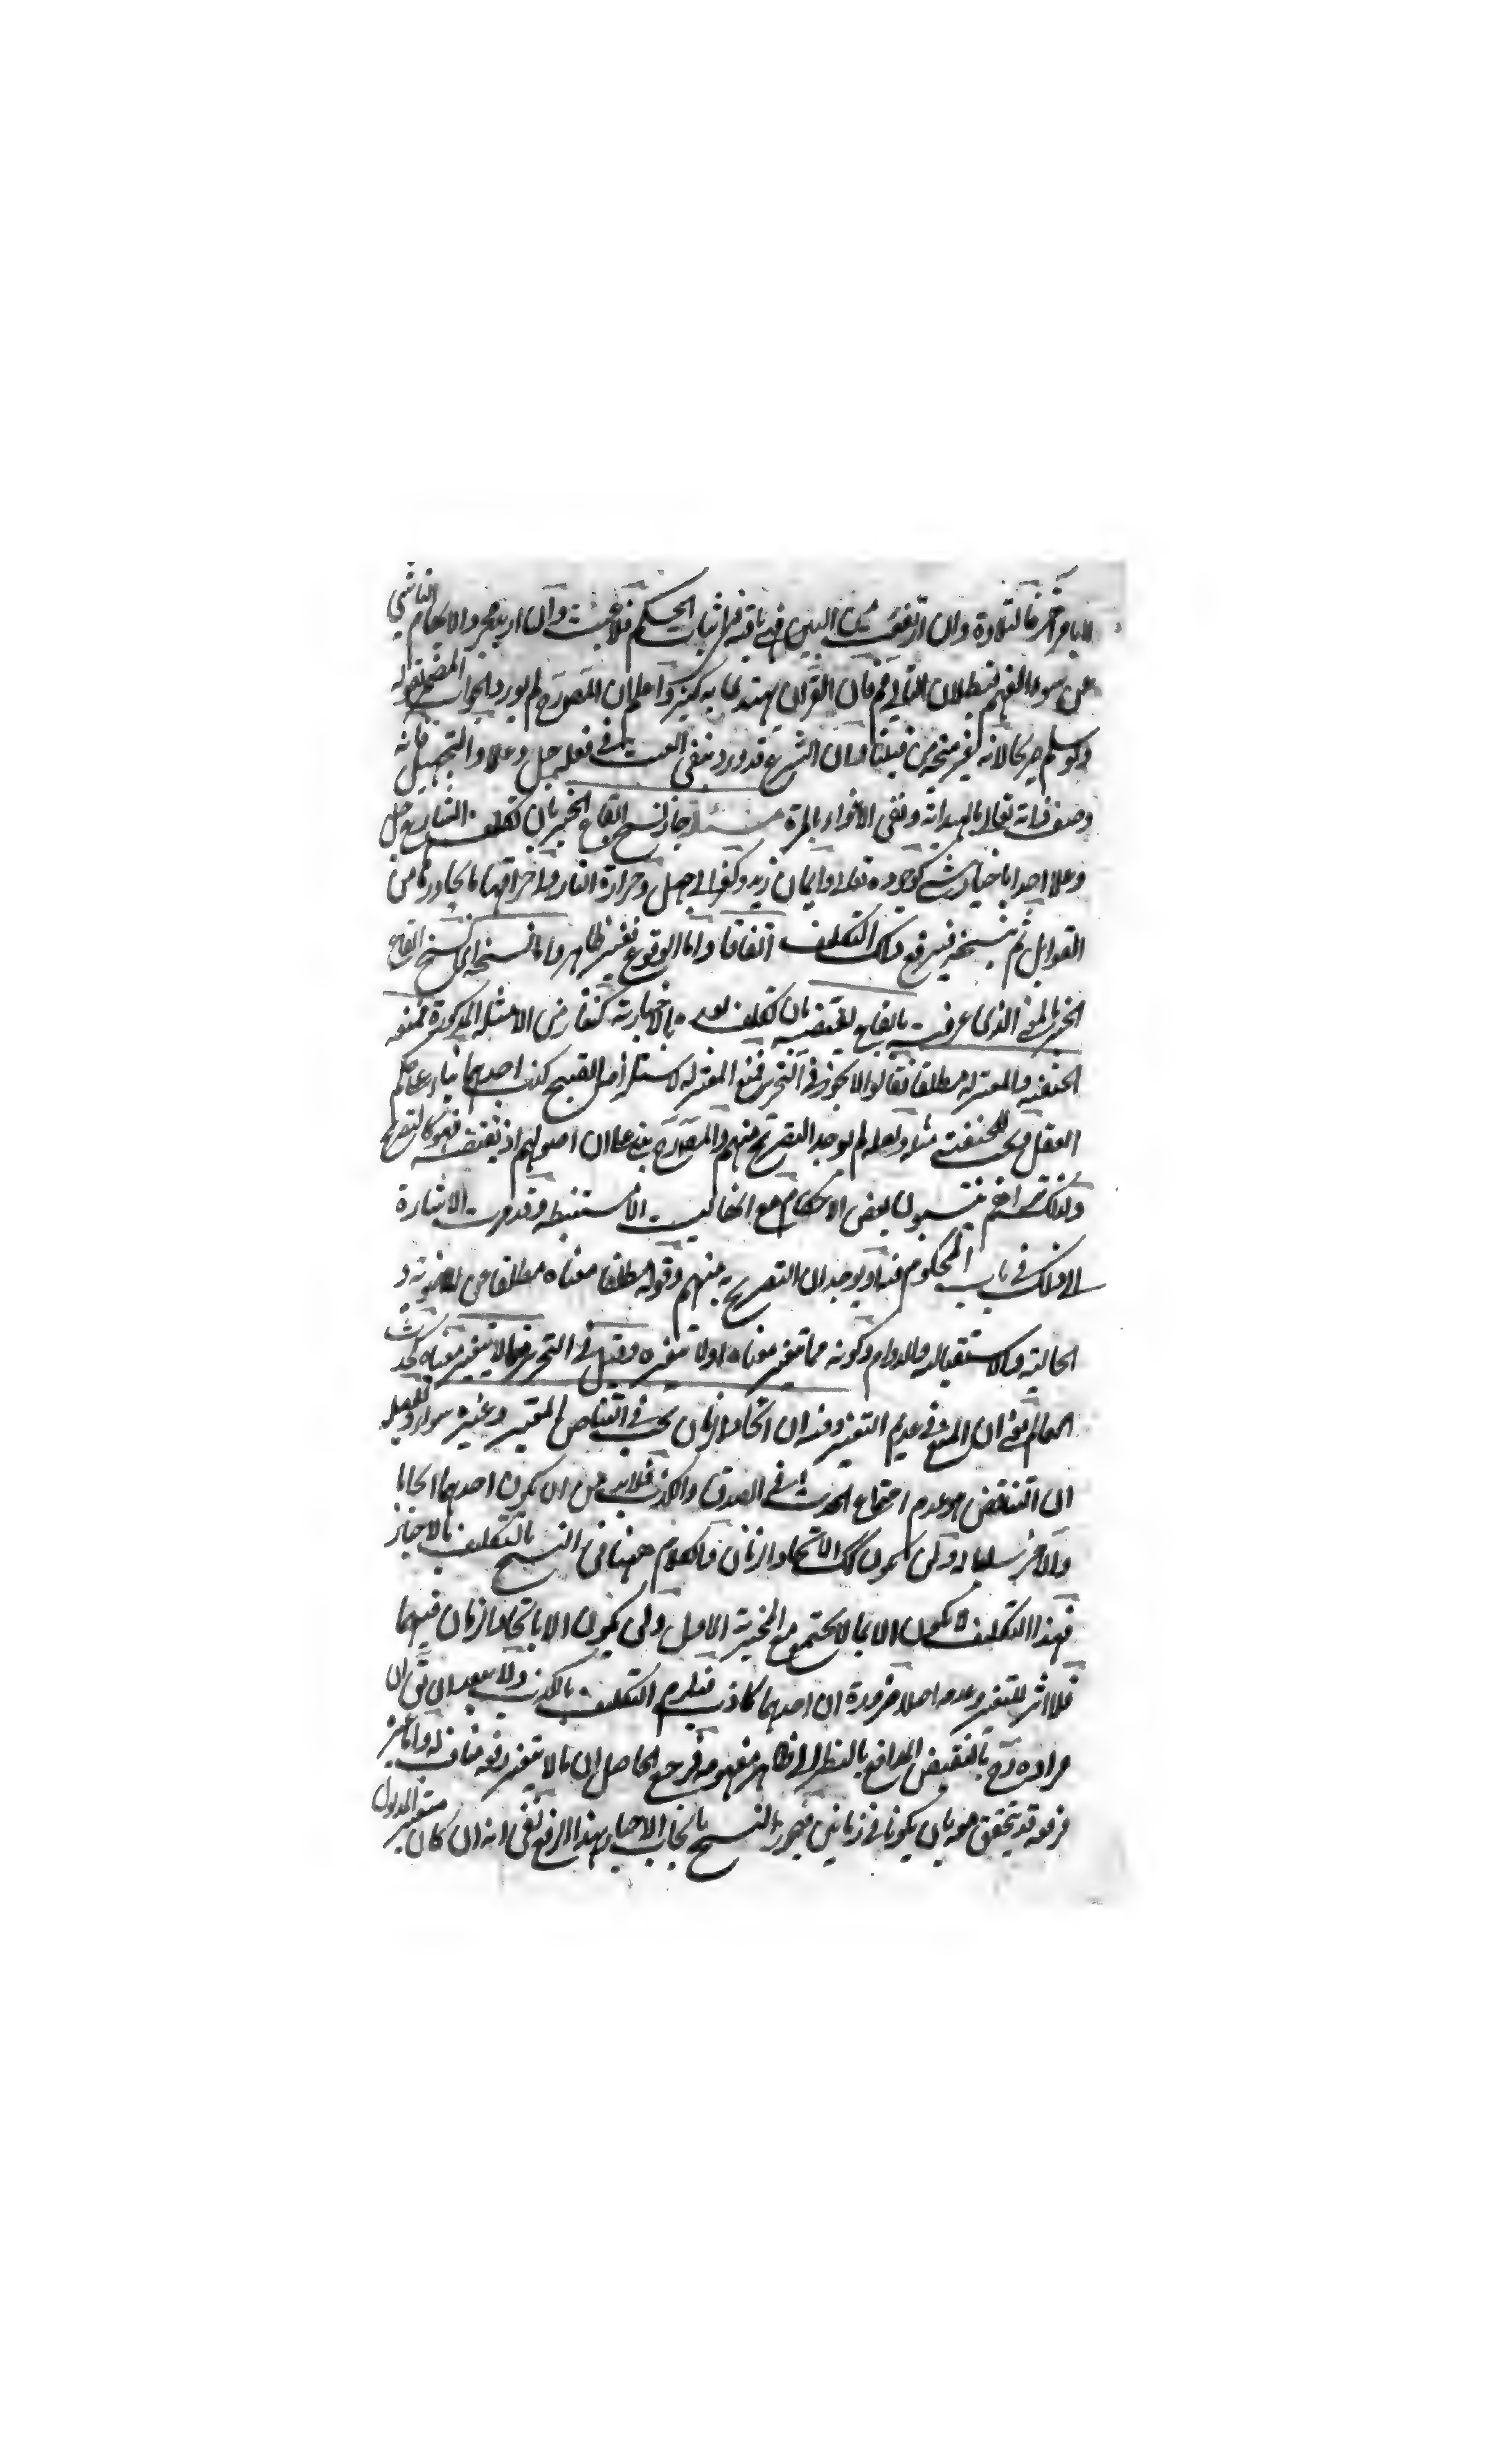 لا بامر آخر فالتلاوة وان ارتفعت من البين فهي باقية في اثبات الحكم فلا عبث وان اريد مجرد الايهام الناشي
عن سوء الفهم فبطلان التالي مم فان القرآن يهتدى به كثير واعلم ان المص رح لم يورد الجواب
ولو سلم لانه لغير من قبلنا وان الشرع قد ورد بنفي العبث في فعله جل وعلا والتجهيل فانه
وصف ذاته تعالى بالهداية ونفي الاغواء بالمرة مسئلة جاز نسخ ايقاع الخبر بان تكليف الشارع جل
وعلا احدا باخبار شيء كوجوده تعالى وايمان زيد وكفر ابي جهل وحرارة النار واحراقها ما يجاورها من
القوابل ثم ينسخه فيرفع ذلك التكليف اتفاقا واما الوقوع فغير ظاهر واما نسخه اي نسخ ايقاع
الخبر بالمعنى الذي عرفت بايقاع نقيضه بان تكليف بعده بالاخبار بنقائض الامثلة المذكورة فمنعه
الحنفية والمعتزلة مطلقا فقالوا لا يجوز في التحرير فمنع المعتزلة لاستلزامه القبيح كذب احدهما بناء على حكم
العقل ويجب للحنفية مثله ولعله لم يوجد التصريح منهم والمص رح بنى على ان اصولهم اذ تقتضيه فهو كالتصريح
ولذلك تراهم ينسبون بعض الاحكام مع انها ليست الا مستنبطة وقد مرت الاشارة
الى ذلك في باب المحكوم فيه او بوجدان التصريح منهم وقوله مطلقا معناه مطلقا عن الماضوية و
الحالية والاستقبالية والدوام وكونه مما تغير معناه او لا تغيره وقيل في التحرير فيما لا يتغير معناه كحدث
العالم يعني ان المنع في عديم التغير وفيه ان اتحاد الزمان يجب في التناقض المتغير وغيره سواء
ان التناقض هو عدم اجتماع في الصدق والكذب فلا بد من ان يكون احدهما ايجابا
والآخر سلبا له ولن يكون ذلك الا باتحاد الزمان والكلام ههنا في النسخ بالتكليف بالاخبار
فهذا التكليف لا يكون الا بما لا يجتمع مع المخبر به الاول ولن يكون الا باتحاد الزمان فيهما
فلا اثر للتغير وعدمه اصلا ضرورة ان احدهما كاذب فيلزم التكليف بالكذب ولا يبعد ان يقال ان
مراده رح بالنقيض الرافع بالنظر الى ظاهر مفهومه فرجع الحاصل ان ما لا يتغير رفعه مناف له واما غيره
فرفعه قد يتحقق معه بان يكونا في زمانين فيجوز النسخ بايجاب الاخبار بهذا الرفع بقي انه ان كان متغير المدلول